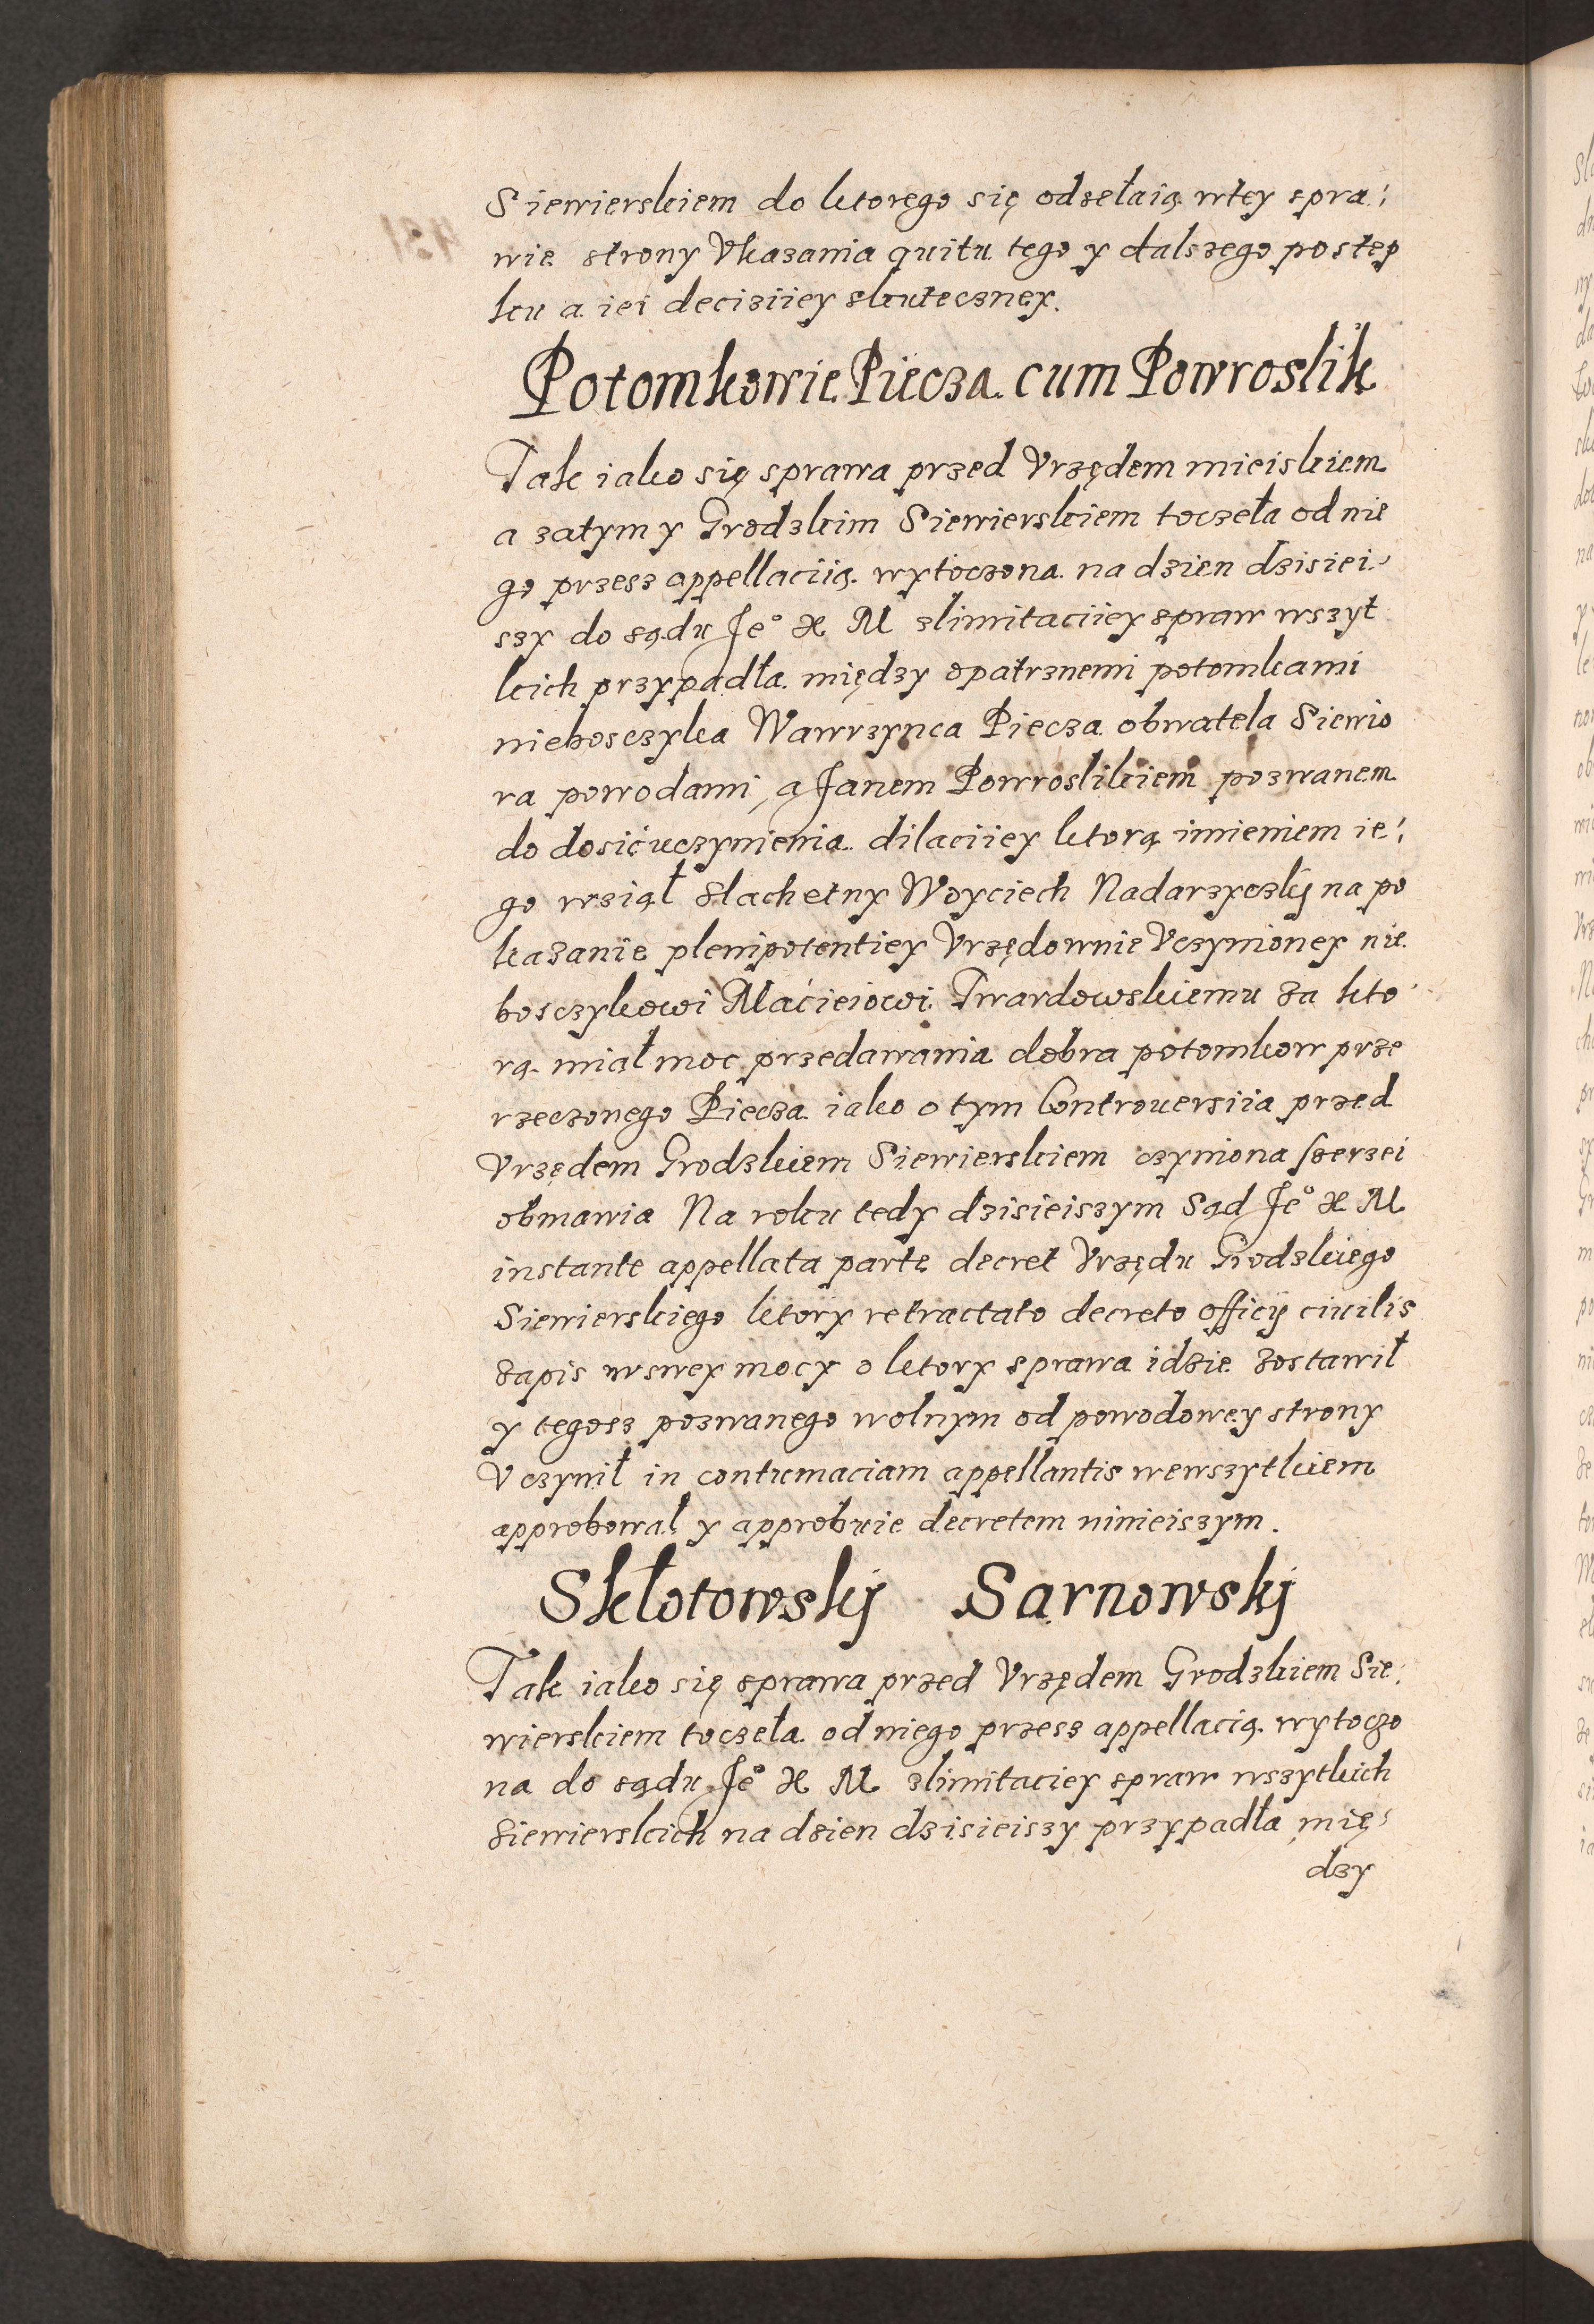 Siewierskiem do ktorego się odsełaią wtey spra:
wie strony Vkazania quitu tego y dalszego postęp
ku a iei deciziiey skuteczney.
Potomkowie Piecza cum Powroslik
Tak iako się sprawa przed Vrzędem mieiskiem
a zatym y Grodzkim Siewierskiem toczeła od nie
go przesz appellaciią wytoczona na dzien dzisiei:
szy do sądu Je° X M zlimitaciiey spraw wszyt
kich przypadła między opatrznemi potomkami
nieboszczyka Wawrzynca Piecza obwatela Siewio
ra powodami, a Janem Powroslikiem pozwanem
do dosić uczynienia dilaciiey ktorą imieniem ie:
go wziął slachetny Woyciech Nadarzyczkÿ na po
kazanie plenipotentiey Vrzędownie Vczynioney nie
bosczykowi Maćieiowi Twardowskiemu za kto
rą miał moc przedawania dobra potomkow prze
rzeczonego Piecza iako o tym Controuersiia przed
Vrzędem Grodzkiem Siewierskiem czyniona szerzei
obmawia Na roku tedy dzisieiszym Sąd Je° X M
instante appellata parte decret Vrzędu Grodzkiego
Siewierskiego ktory retractato decreto officÿ ciuilis
zapis wswey mocy o ktory sprawa idzie zostawił
y tegosz pozwanego wolnym od powodowey strony
Vczynił in contumaciam appellantis wewszytkiem
approbował y approbuie decretem ninieiszym.
Skłotowskÿ Sarnowskj
Tak iako się sprawa przed Vrzędem Grodzkiem Sie:
wierskiem toczeła od niego przesz appellacią wytoczo
na do sądu Je° X M zlimitaciey spraw wszytkich
Siewierskich na dzien dzisieiszy przypadła mię:
dzy